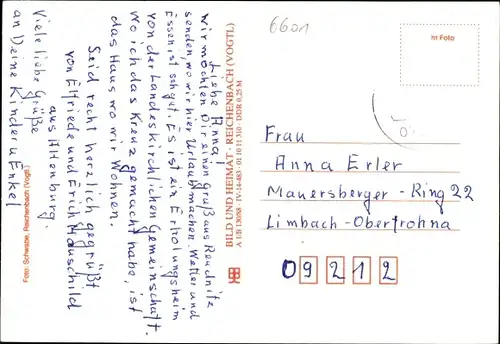 6601
Liebe Anna!
Wir möchten Dir einen Gruß aus Reudnitz
senden, wo wir hier Urlaub machen. Wetter und
Essen ist s. gut. Es ist ein Erholungsheim
von der Landeskirchlichen Gemeinschaft.
Wo ich das Kreuz gemacht habe, ist
das Haus wo wir Wohnen.
Seid recht herzlich gegrüßt
von Elfriede und Erich Hauschild
aus Altenburg.
Viele liebe Grüße
an Deine Kinder u Enkel
Foto: Schwabe, Reichenbach (Vogtl.)
BILD UND HEIMAT · REICHENBACH (VOGTL)
ht Foto
Frau
Anna Erler
Mauersberger-Ring 22
Limbach-Oberfrohna
09212